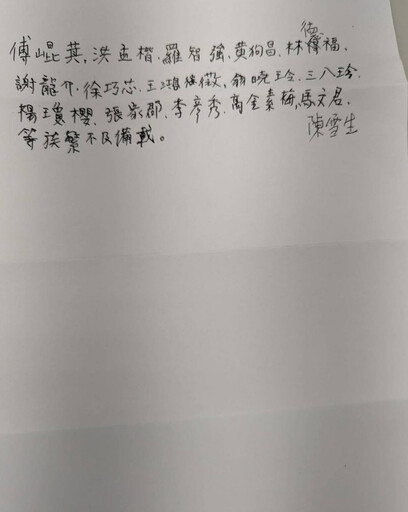 傅崐萁,洪孟楷、羅智強、黃健昌、林德福、
謝龍介、徐巧芯、王鴻薇、翁曉玲、王八玲、
楊瓊櫻、張嘉郡、李彥秀、高金素梅、馬文君、
陳雪生
等族繁不及備載。